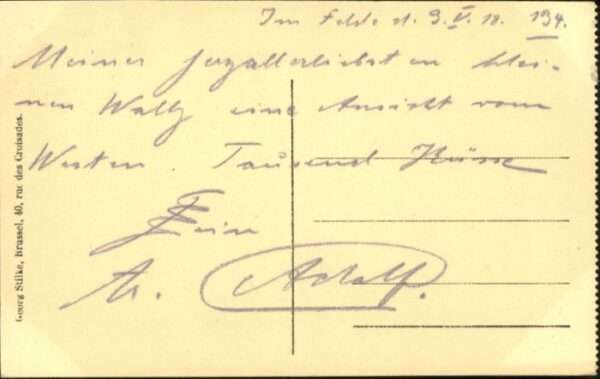 Im Felde d. 9.V.18. 134.
Meiner herzallerliebsten klei-
nen Wally eine Ansicht vom
Westen. Tausend Küsse
Dein
Adolf.
Georg Stilke, Brussel, 40, rue des Croisades.